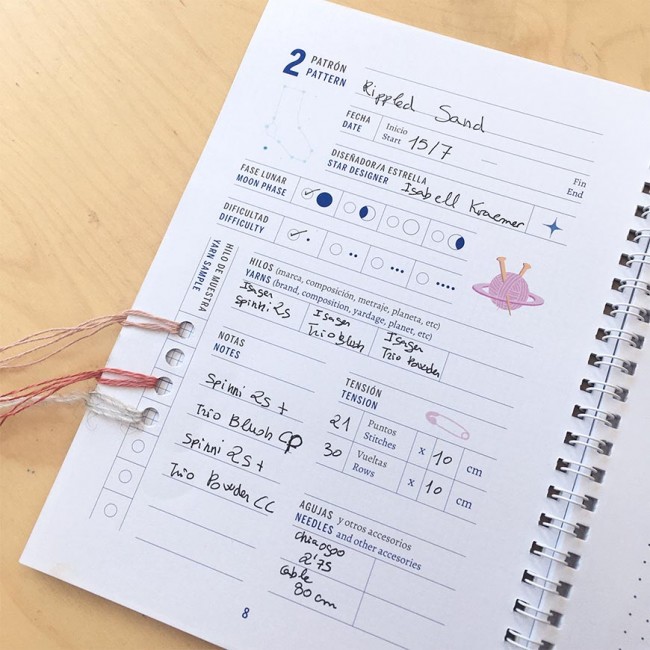 2 PATRÓN
PATTERN
Rippled Sand
FECHA
DATE
Inicio
Start
15/7
Fin
End
DISEÑADOR/A ESTRELLA
STAR DESIGNER
Isabell Kraemer
FASE LUNAR
MOON PHASE
DIFICULTAD
DIFFICULTY
HILO DE MUESTRA
YARN SAMPLE
HILOS (marca, composición, metraje, planeta, etc)
YARNS (brand, composition, yardage, planet, etc)
Isager
Spinni 2s
Isager
Trio Blush
Isager
Trio Powder
NOTAS
NOTES
Spinni 2s +
Trio Blush CP
Spinni 2s +
Trio Powder CC
TENSIÓN
TENSION
21 Puntos
Stitches
x 10 cm
30 Vueltas
Rows
x 10 cm
AGUJAS y otros accesorios
NEEDLES and other accesories
Chiaogoo
2'75
Cable
80 cm
8